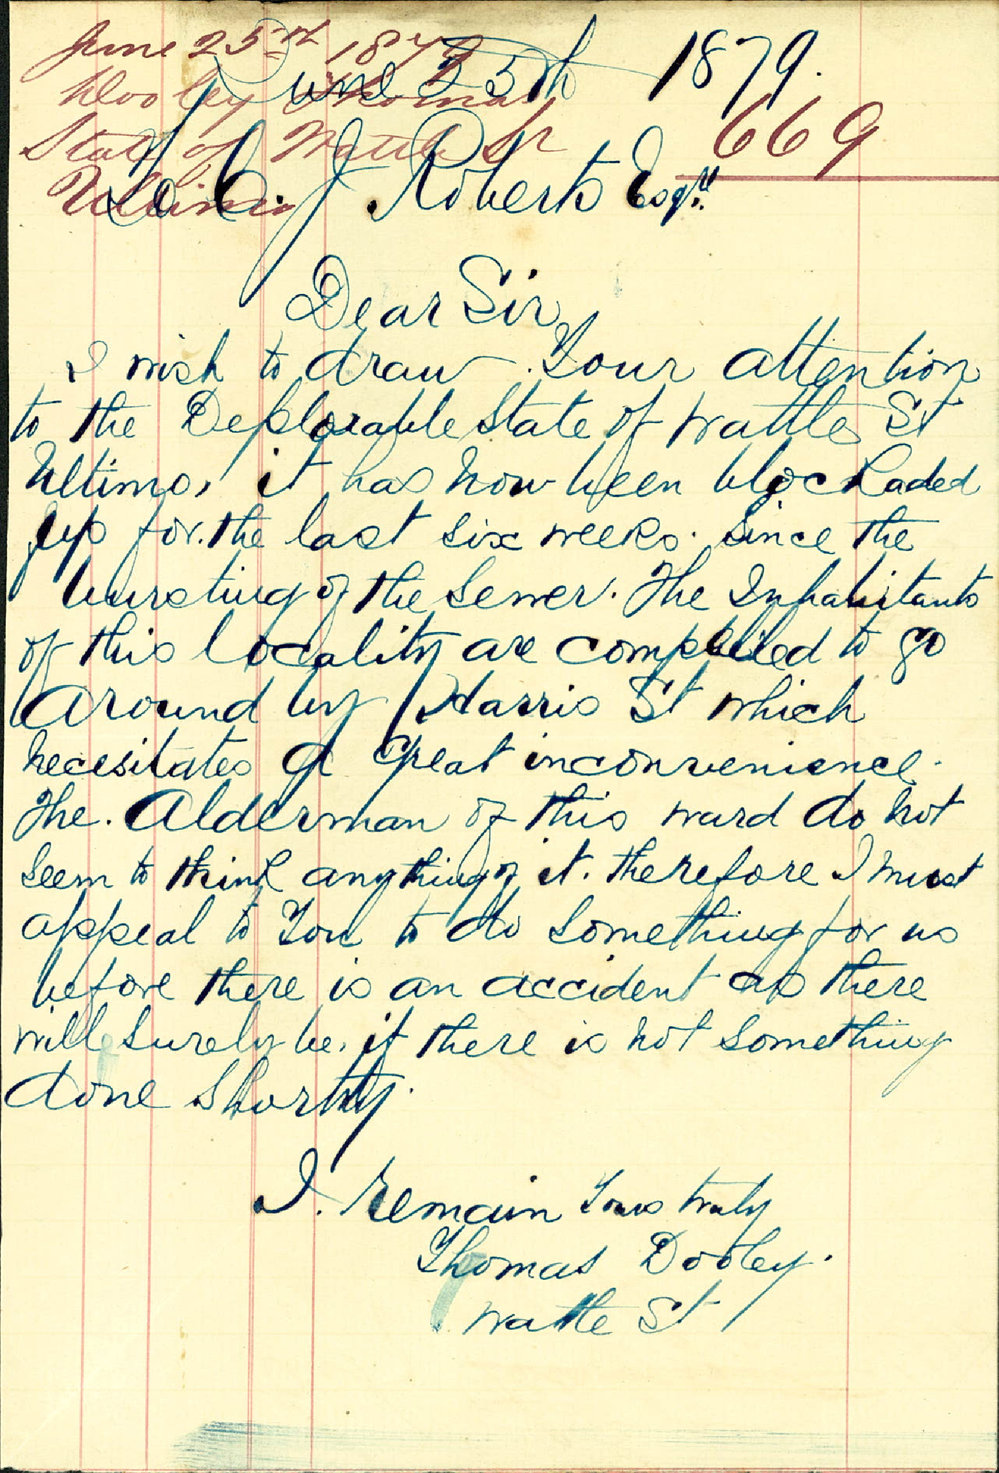 June 25th 1879
Dooley Thomas
State of Wattle St
Ultimo
669
June 25th 1879.
To C. J. Roberts Esqr.
Dear Sir
I wish to draw Your attention
to the Deplorable State of Wattle St
Ultimo, it has now been blockaded
up for the last six weeks. Since the
bursting of the Sewer. The Inhabitants
of this locality are compelled to go
around by Harris St which
necesitates a great inconvenience.
The Alderman of this ward do not
seem to think anything of it. therefore I must
appeal to You to do something for us
before there is an accident as there
will surely be, if there is not something
done Shortly.
I. Remain Yours truly
Thomas Dooley.
Wattle St